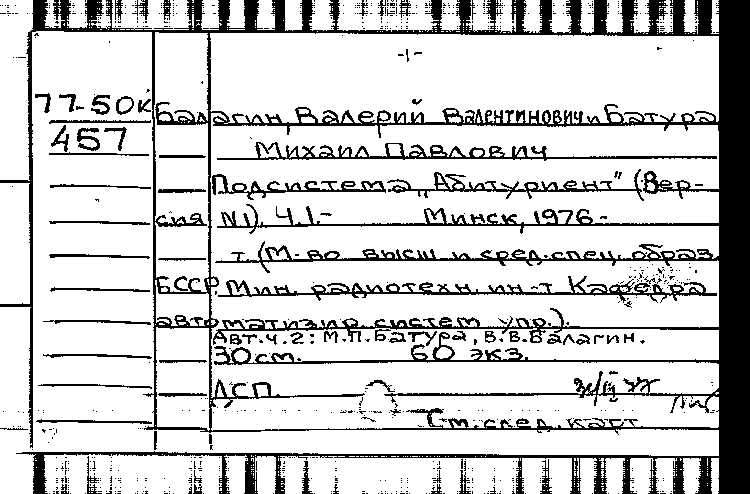 -1-
77-50к
457
Балагин, Валерий Валентинович и Батура
Михаил Павлович
Подсистема „Абитуриент" (Вер-
сия N1). Ч.1.- Минск, 1976-
т. (М-во высш и сред. спец. образ.
БССР. Мин. радиотехн. ин-т Кафедра
автоматизир. систем упр.).
Авт. ч. 2: М.П. Батура, В.В. Балагин.
30 см. 60 экз.
ДСП.
См. след. карт